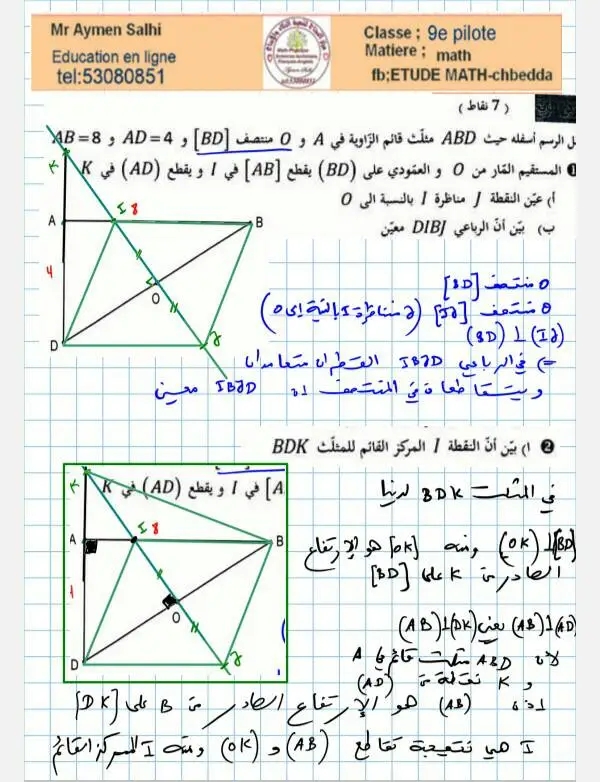 Mr Aymen Salhi
Education en ligne
tel:53080851
Classe ; 9e pilote
Matiere ; math
fb;ETUDE MATH-chbedda
( 7 نقاط )
ل الرسم أسفله حيث ABD مثلّث قائم الزّاوية في A و O منتصف [BD] و AD=4 و AB=8
❶ المستقيم المّار من O و العمّودي على (BD) يقطع [AB] في I و يقطع (AD) في K
أ) عيّن النقطة J مناظرة I بالنسبة الى O
ب) بيّن أنّ الرباعي DIBJ معيّن
K
A
I 8
B
4
O
D
J
O منتصف [BD]
O منتصف [IJ] (J مناظرة I بالنسبة إلى O)
(IJ) ⊥ (BD)
=) في الرباعي IBJD القطران متعامدان
و يتقاطعان في المنتصف إذن IBJD معين
❷ ا) بيّن أنّ النقطة I المركز القائم للمثلّث BDK
A] في I و يقطع (AD) في K
K
A
I 8
B
O
D
J
في المثلث BDK لدينا
[BD]⊥(OK) ومنه [OK] هو الإرتفاع
الصادر من K على [BD]
(AB)⊥(AD) يعني (AB)⊥(DK)
لأن ABD مثلث قائم في A
و K نقطة من (AD)
إذن (AB) هو الإرتفاع الصادر من B على [DK]
I هي نتيجة تقاطع (AB) و (OK) ومنه I المركز القائم